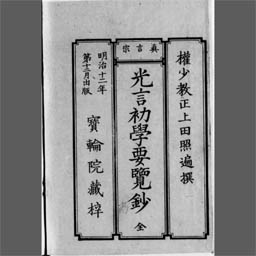 真言宗
權少教正上田照遍撰
光言初學要覽鈔 全
明治十二年
第十二月出版
寶輪院藏梓